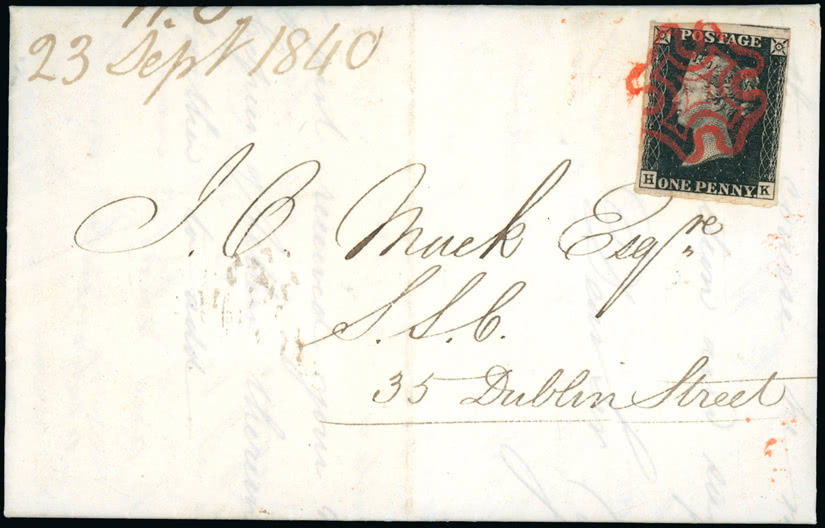 23 Sept 1840
POSTAGE
H ONE PENNY K
J. C. Muck Esqre
S.S.C.
35 Dublin Street